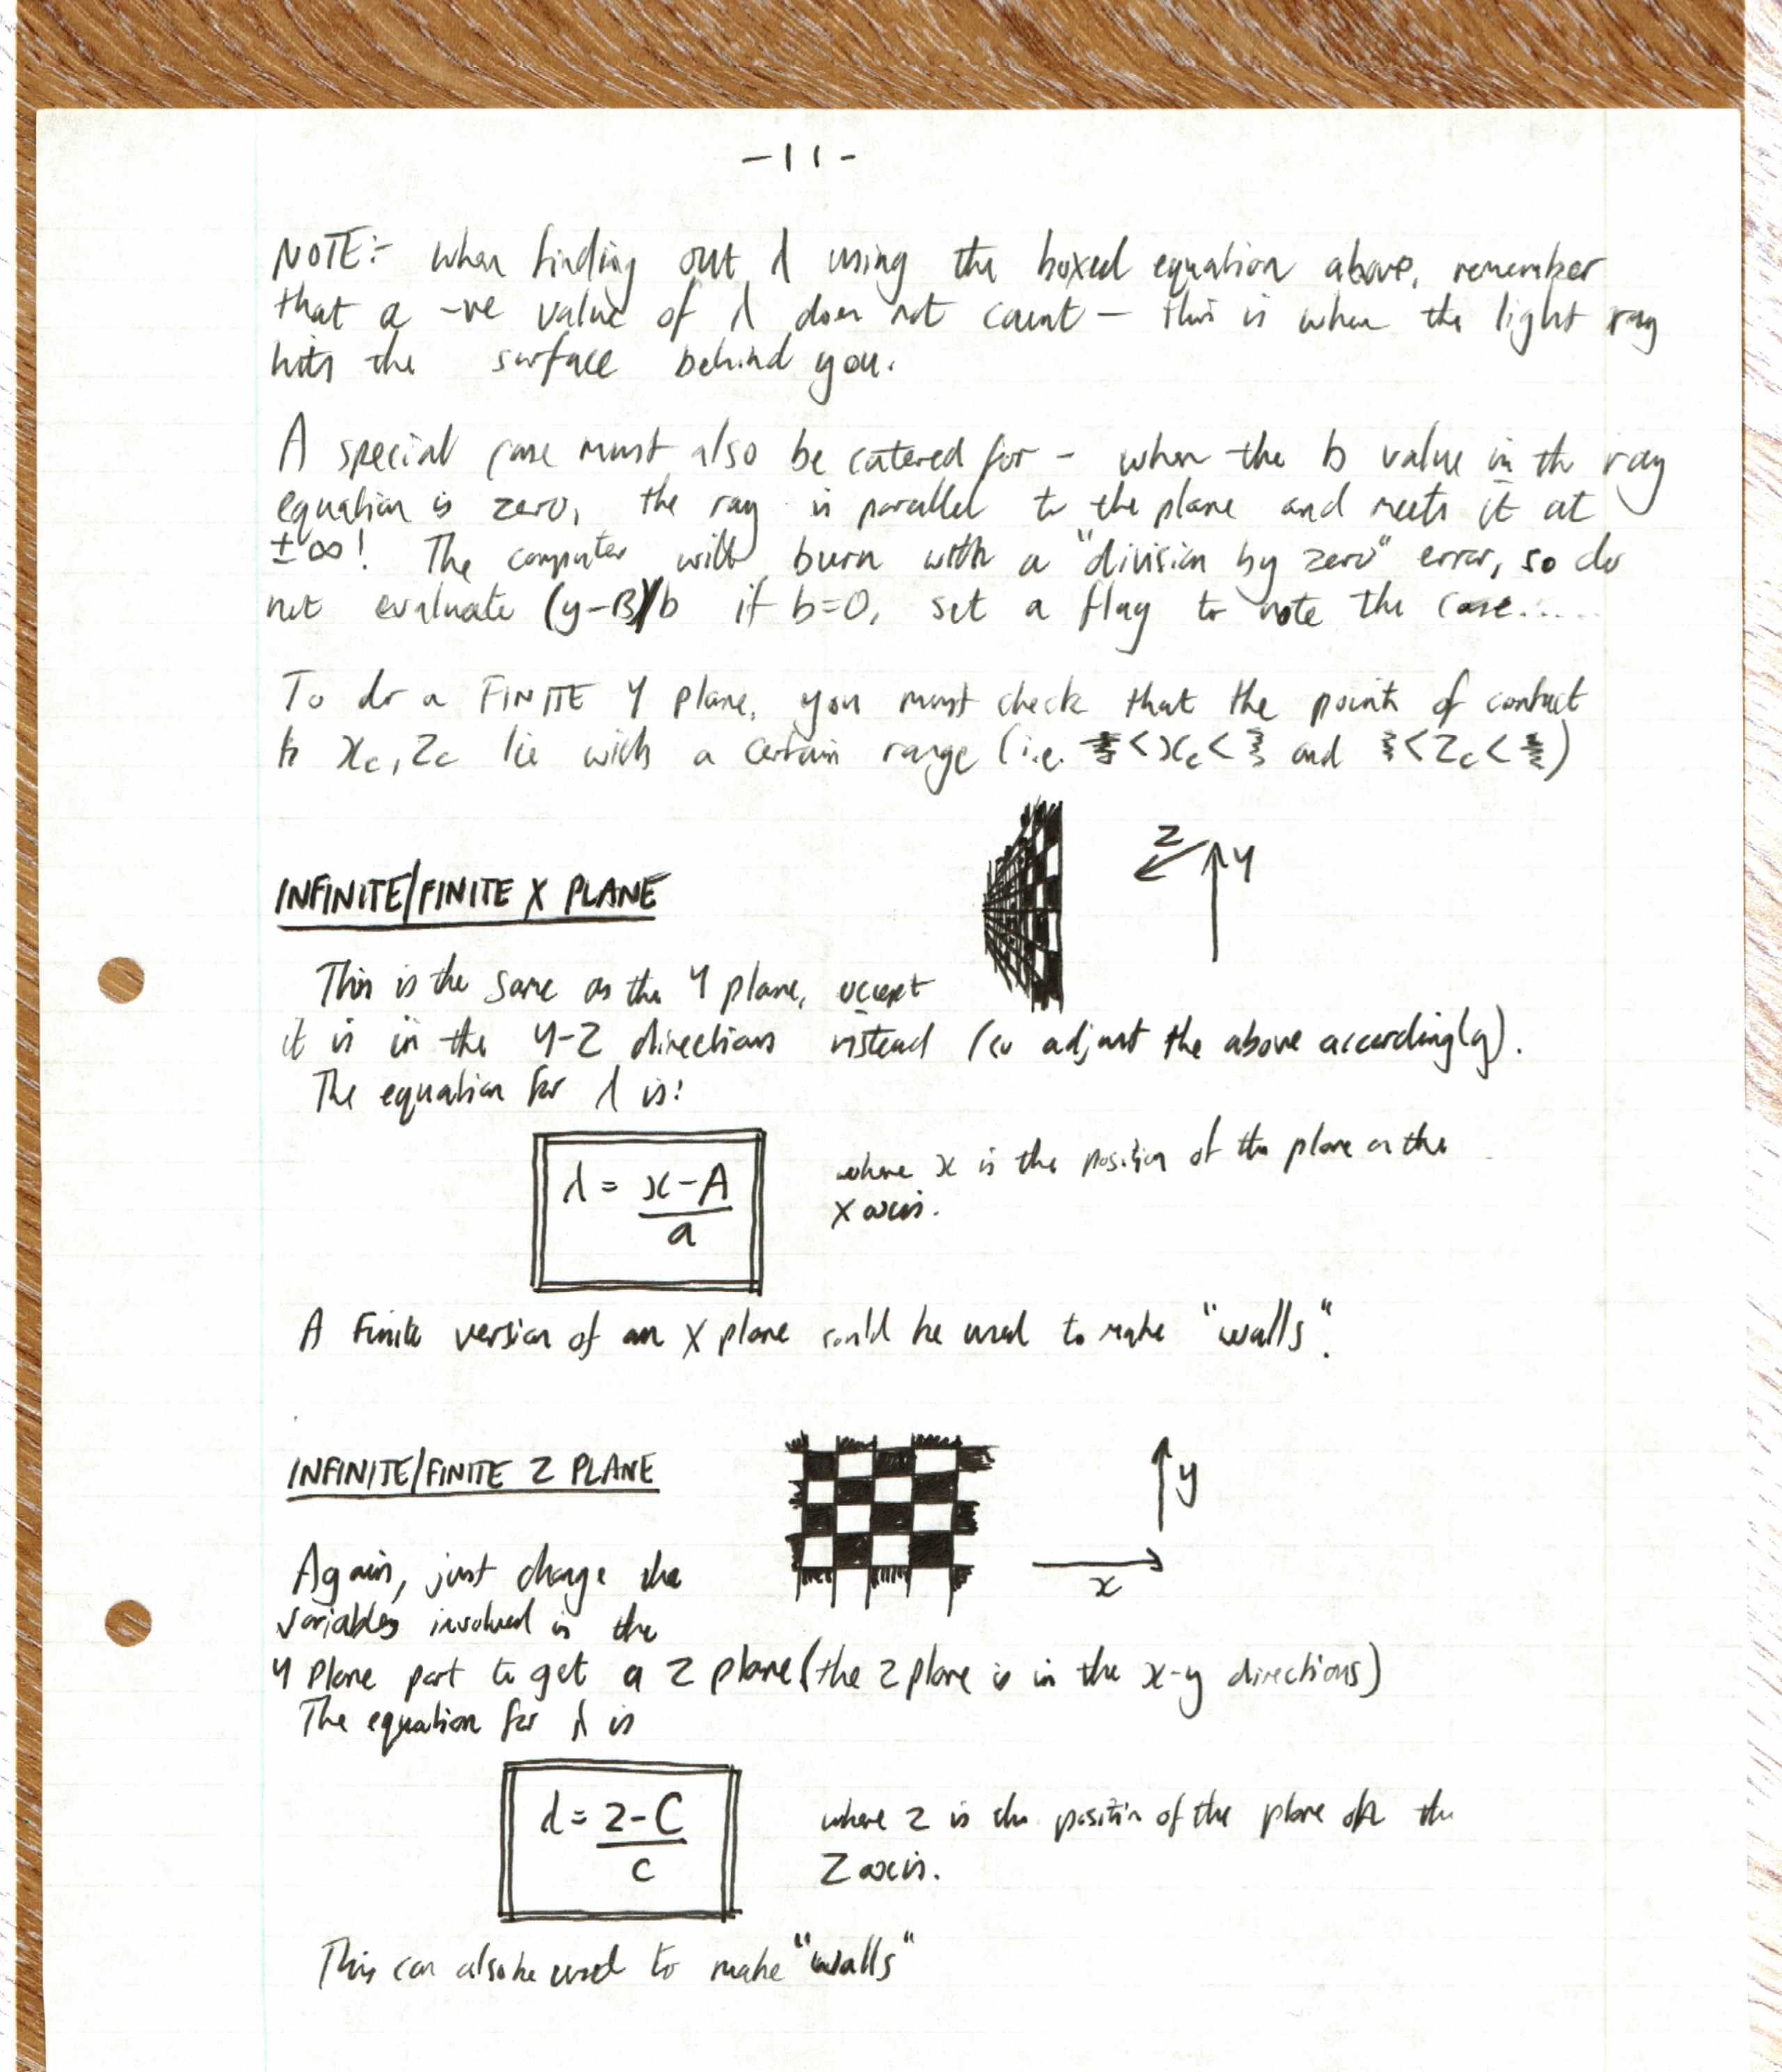 -11-
NOTE:- when finding out λ using the boxed equation above, remember
that a -ve value of λ does not count - this is when the light ray
hits the surface behind you.
A special case must also be catered for - when the b value in the ray
equation is zero, the ray is parallel to the plane and meets it at
±∞! The computer will burn with a "division by zero" error, so do
not evaluate (y-B)/b if b=0, set a flag to note the case.....
To do a FINITE Y plane, you must check that the point of contact
xc, zc lie with a certain range (i.e. < xc < and < zc < )
z y
INFINITE/FINITE X PLANE
This is the same as the Y plane, except
it is in the Y-Z directions instead (so adjust the above accordingly).
The equation for λ is:
λ = x-A
a
where x is the position of the plane on the
X axis.
A finite version of an X plane could be used to make "walls".
INFINITE/FINITE Z PLANE
y
x
Again, just change the
variables involved in the
Y plane part to get a Z plane (the Z plane is in the x-y directions)
The equation for λ is
λ = z-C
c
where z is the position of the plane on the
Z axis.
This can also be used to make "walls"